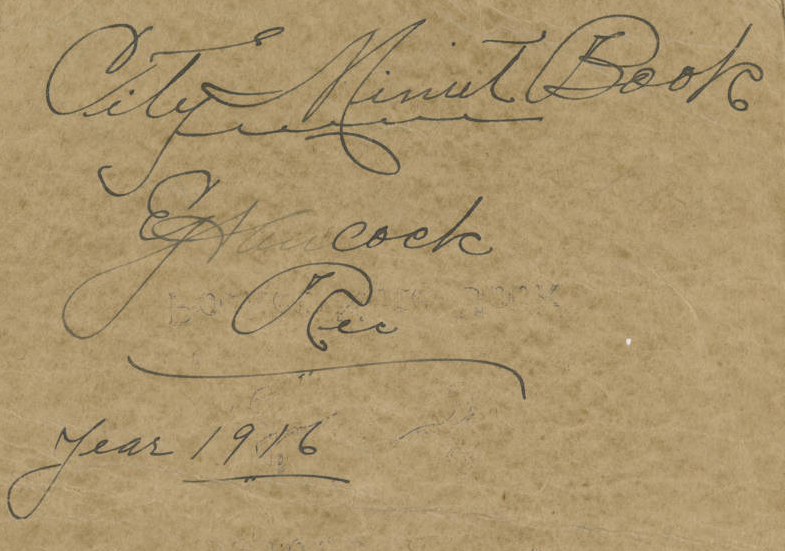 City Minut Book
EJ Hancock
Rec
Year 1916